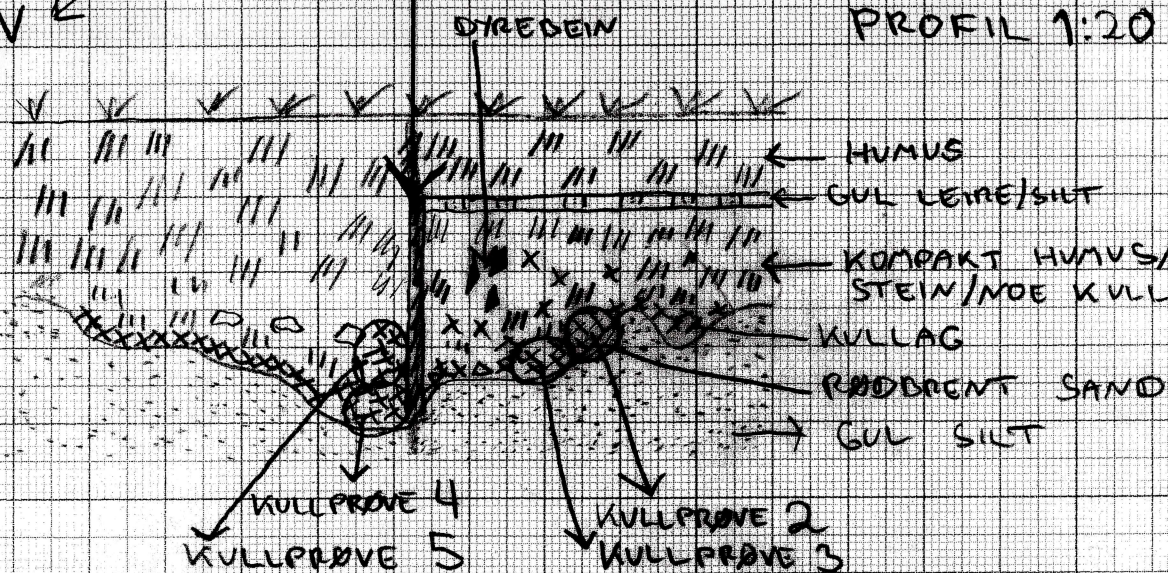 V
DYREBEIN
PROFIL 1:20
HUMUS
GUL LEIRE/SILT
KOMPAKT HUMUS/
STEIN/NOE KULL
KULLAG
RØDBRENT SAND
GUL SILT
KULLPRØVE 4
KULLPRØVE 5
KULLPRØVE 2
KULLPRØVE 3